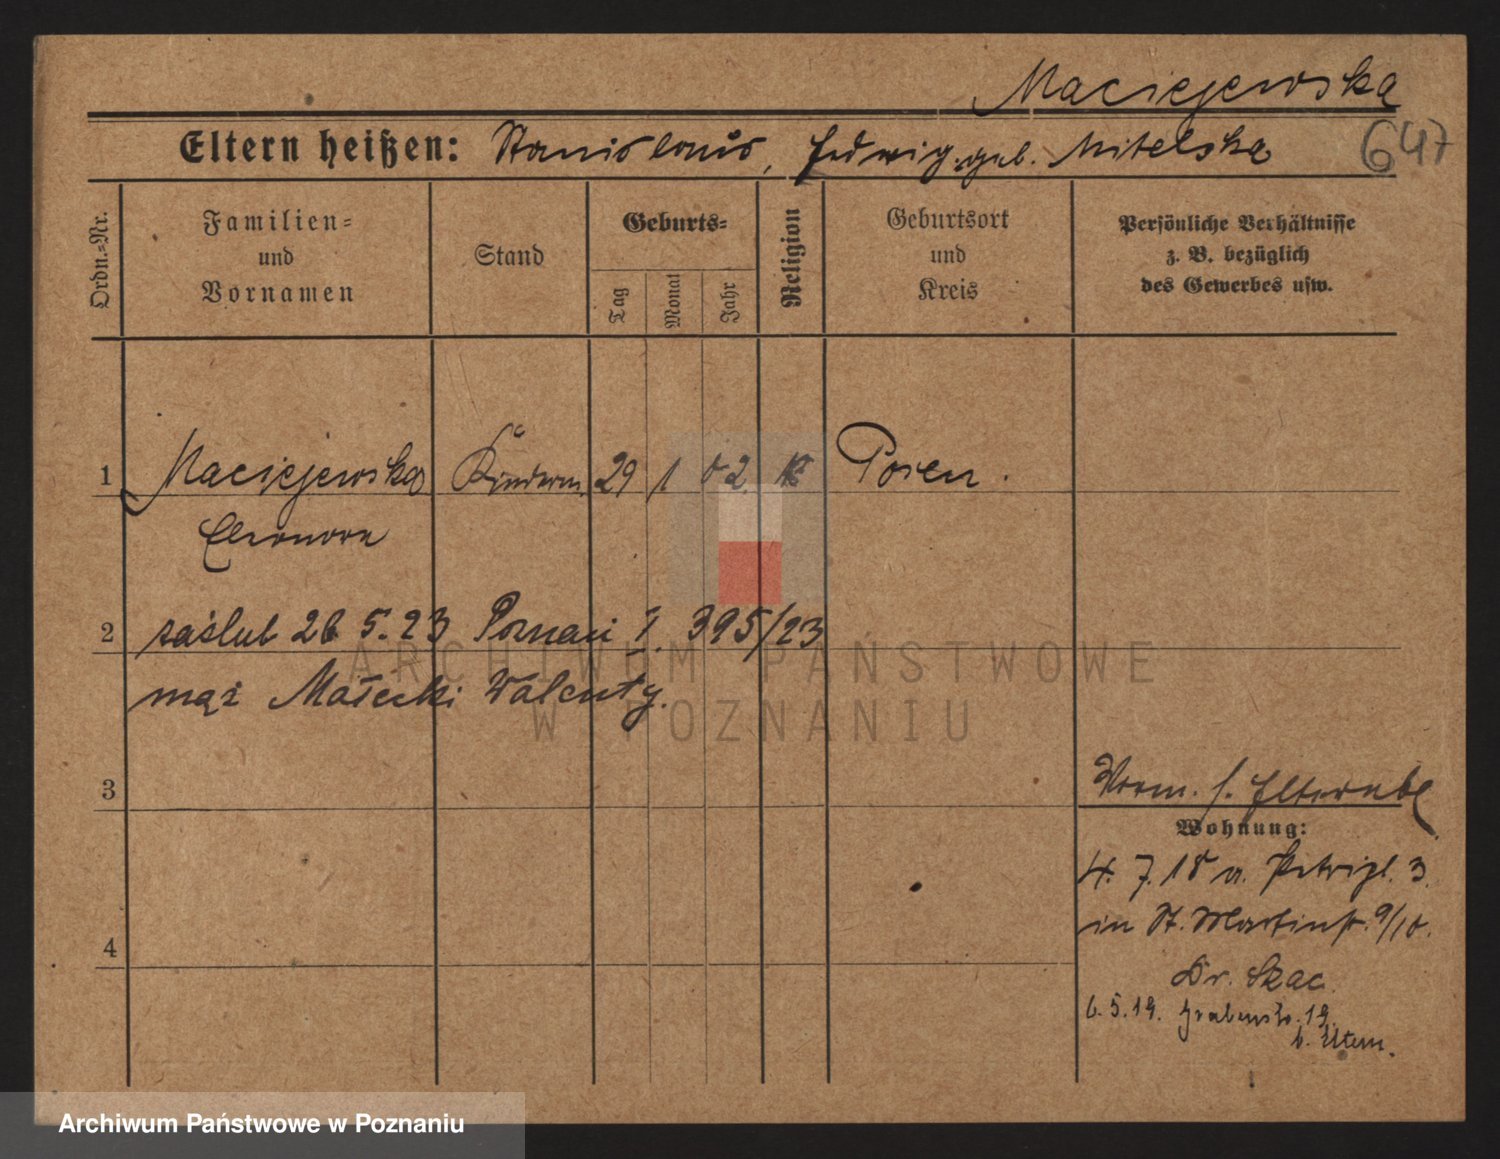 Maciejewska
Eltern heißen: Stanislaus, Hedwig geb. Mitelska
647
Ordn.=Nr.
Familien=
und
Vornamen
Stand
Geburts=
Tag
Monat
Jahr
Religion
Geburtsort
und
Kreis
Persönliche Verhältnisse
z. B. bezüglich
des Gewerbes usw.
1 Maciejewska Kinderm. 29 1 02 K Posen.
Eleonora
2 zaślub 26 5.23 Poznań I. 395/23
mąż Małecki Walenty.
3
Vorm. s. Elternbl
Wohnung:
4. 7. 18 v. Petripl. 3.
in St. Martinstr. 9/10.
4
Dr. Skac.
6.5.19. Grabenstr. 19.
b. Eltern.
ARCHIWUM PAŃSTWOWE
W POZNANIU
Archiwum Państwowe w Poznaniu